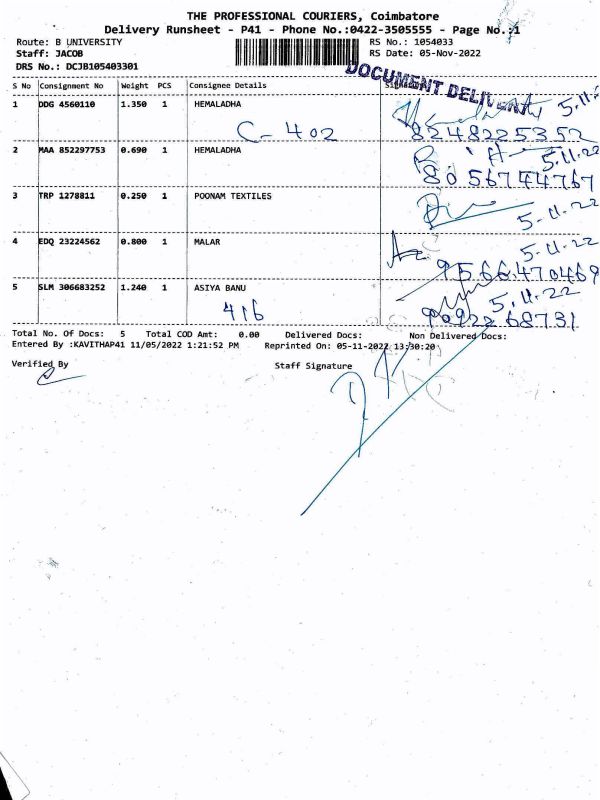 THE PROFESSIONAL COURIERS, Coimbatore
Delivery Runsheet - P41 - Phone No.:0422-3505555 - Page No.:1
Route: B UNIVERSITY RS No.: 1054033
Staff: JACOB RS Date: 05-Nov-2022
DRS No.: DCJB105403301
DOCUMENT DELIVERY
S No Consignment No Weight PCS Consignee Details
1 DDG 4560110 1.350 1 HEMALADHA 5.11.
C-402 8248225352
2 MAA 852297753 0.690 1 HEMALADHA 5.11.22
8056744767
3 TRP 1278811 0.250 1 POONAM TEXTILES
5-11-22
4 EDQ 23224562 0.800 1 MALAR 5-11-22
9566470469
5 SLM 306683252 1.240 1 ASIYA BANU 5.11.22
416 9092268731
Total No. Of Docs: 5 Total COD Amt: 0.00 Delivered Docs: Non Delivered Docs:
Entered By :KAVITHAP41 11/05/2022 1:21:52 PM Reprinted On: 05-11-2022 13:30:20
Verified By Staff Signature